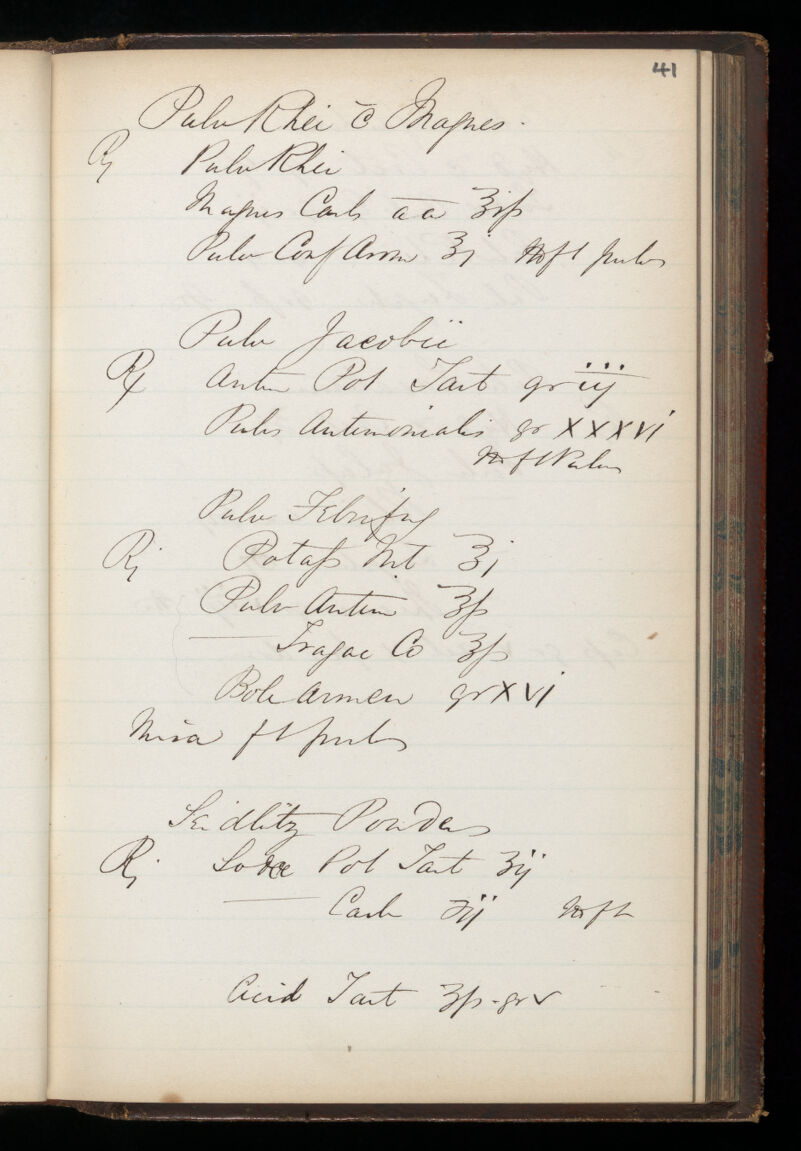 41
Pulv Rhei c̄ Magnes.
℞ Pulv Rhei
Magnes Carb āā ʒiſs
Pulv Conf Arom ʒj M ft pulv
Pulv Jacobii
℞ Antim Pot Tart gr iij
Pulv Antimonialis gr XXXVI
M ft Pulv
Pulv Febrifug
℞ Potaſs Nit ʒj
Pulv Antim ʒſs
—— Tragac Co ʒſs
Bole Armen gr XVI
Misce ft pulv
Seidlitz Powders
℞ Sodæ Pot Tart ʒij
—— Carb ℈ij M ft
Acid Tart ʒſs - gr v